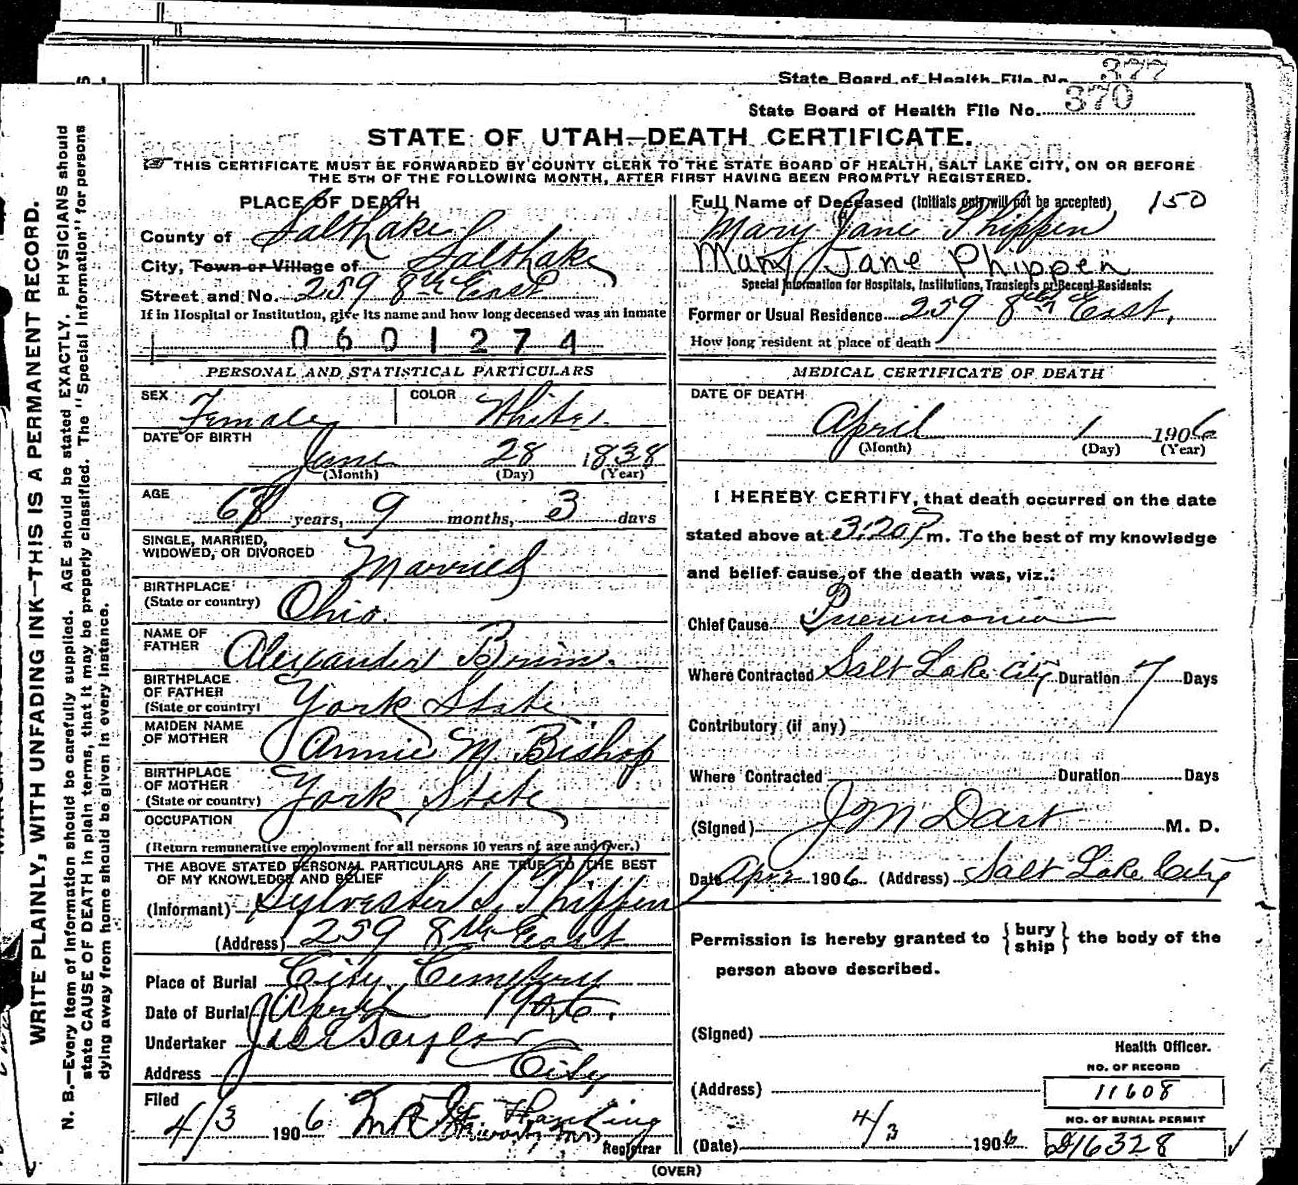 State Board of Health File No. 377
State Board of Health File No. 370
STATE OF UTAH—DEATH CERTIFICATE.
THIS CERTIFICATE MUST BE FORWARDED BY COUNTY CLERK TO THE STATE BOARD OF HEALTH, SALT LAKE CITY, ON OR BEFORE
THE 5TH OF THE FOLLOWING MONTH, AFTER FIRST HAVING BEEN PROMPTLY REGISTERED.
WRITE PLAINLY, WITH UNFADING INK—THIS IS A PERMANENT RECORD.
N. B.—Every item of Information should be carefully supplied. AGE should be stated EXACTLY. PHYSICIANS should
state CAUSE OF DEATH in plain terms, that it may be properly classified. The "Special Information" for persons
dying away from home should be given in every instance.
PLACE OF DEATH
County of Salt Lake
City, Town or Village of Salt Lake
Street and No. 259 8th East
If in Hospital or Institution, give its name and how long deceased was an inmate
0601274
PERSONAL AND STATISTICAL PARTICULARS
SEX Female COLOR White
DATE OF BIRTH
June 28 1838
(Month) (Day) (Year)
AGE
68 years, 9 months, 3 days
SINGLE, MARRIED,
WIDOWED, OR DIVORCED Married
BIRTHPLACE
(State or country) Ohio
NAME OF
FATHER Alexander Brim.
BIRTHPLACE
OF FATHER
(State or country) York State
MAIDEN NAME
OF MOTHER Annie M. Bishop
BIRTHPLACE
OF MOTHER
(State or country) York State
OCCUPATION
(Return remunerative employment for all persons 10 years of age and over.)
THE ABOVE STATED PERSONAL PARTICULARS ARE TRUE TO THE BEST
OF MY KNOWLEDGE AND BELIEF
(Informant) Sylvester S. Phippen
(Address) 259 8th East
Place of Burial City Cemetery
Date of Burial April 1906.
Undertaker Taylor
Address City
Filed
4/3 1906
Registrar
Full Name of Deceased (Initials only will not be accepted) 150
Mary Jane Phippen
Mary Jane Phippen
Special Information for Hospitals, Institutions, Transients or Recent Residents:
Former or Usual Residence 259 8th East,
How long resident at place of death
MEDICAL CERTIFICATE OF DEATH
DATE OF DEATH
April 1 1906
(Month) (Day) (Year)
I HEREBY CERTIFY, that death occurred on the date
stated above at 3:20 P m. To the best of my knowledge
and belief cause of the death was, viz.:
Chief Cause Pneumonia
Where Contracted Salt Lake City Duration 7 Days
Contributory (if any)
Where Contracted Duration Days
(Signed) J M Dart M. D.
Date Apr 2 1906 (Address) Salt Lake City
Permission is hereby granted to { bury ship } the body of the
person above described.
(Signed)
Health Officer.
NO. OF RECORD
(Address) 11608
NO. OF BURIAL PERMIT
(Date) 4/3 1906 16328
(OVER)